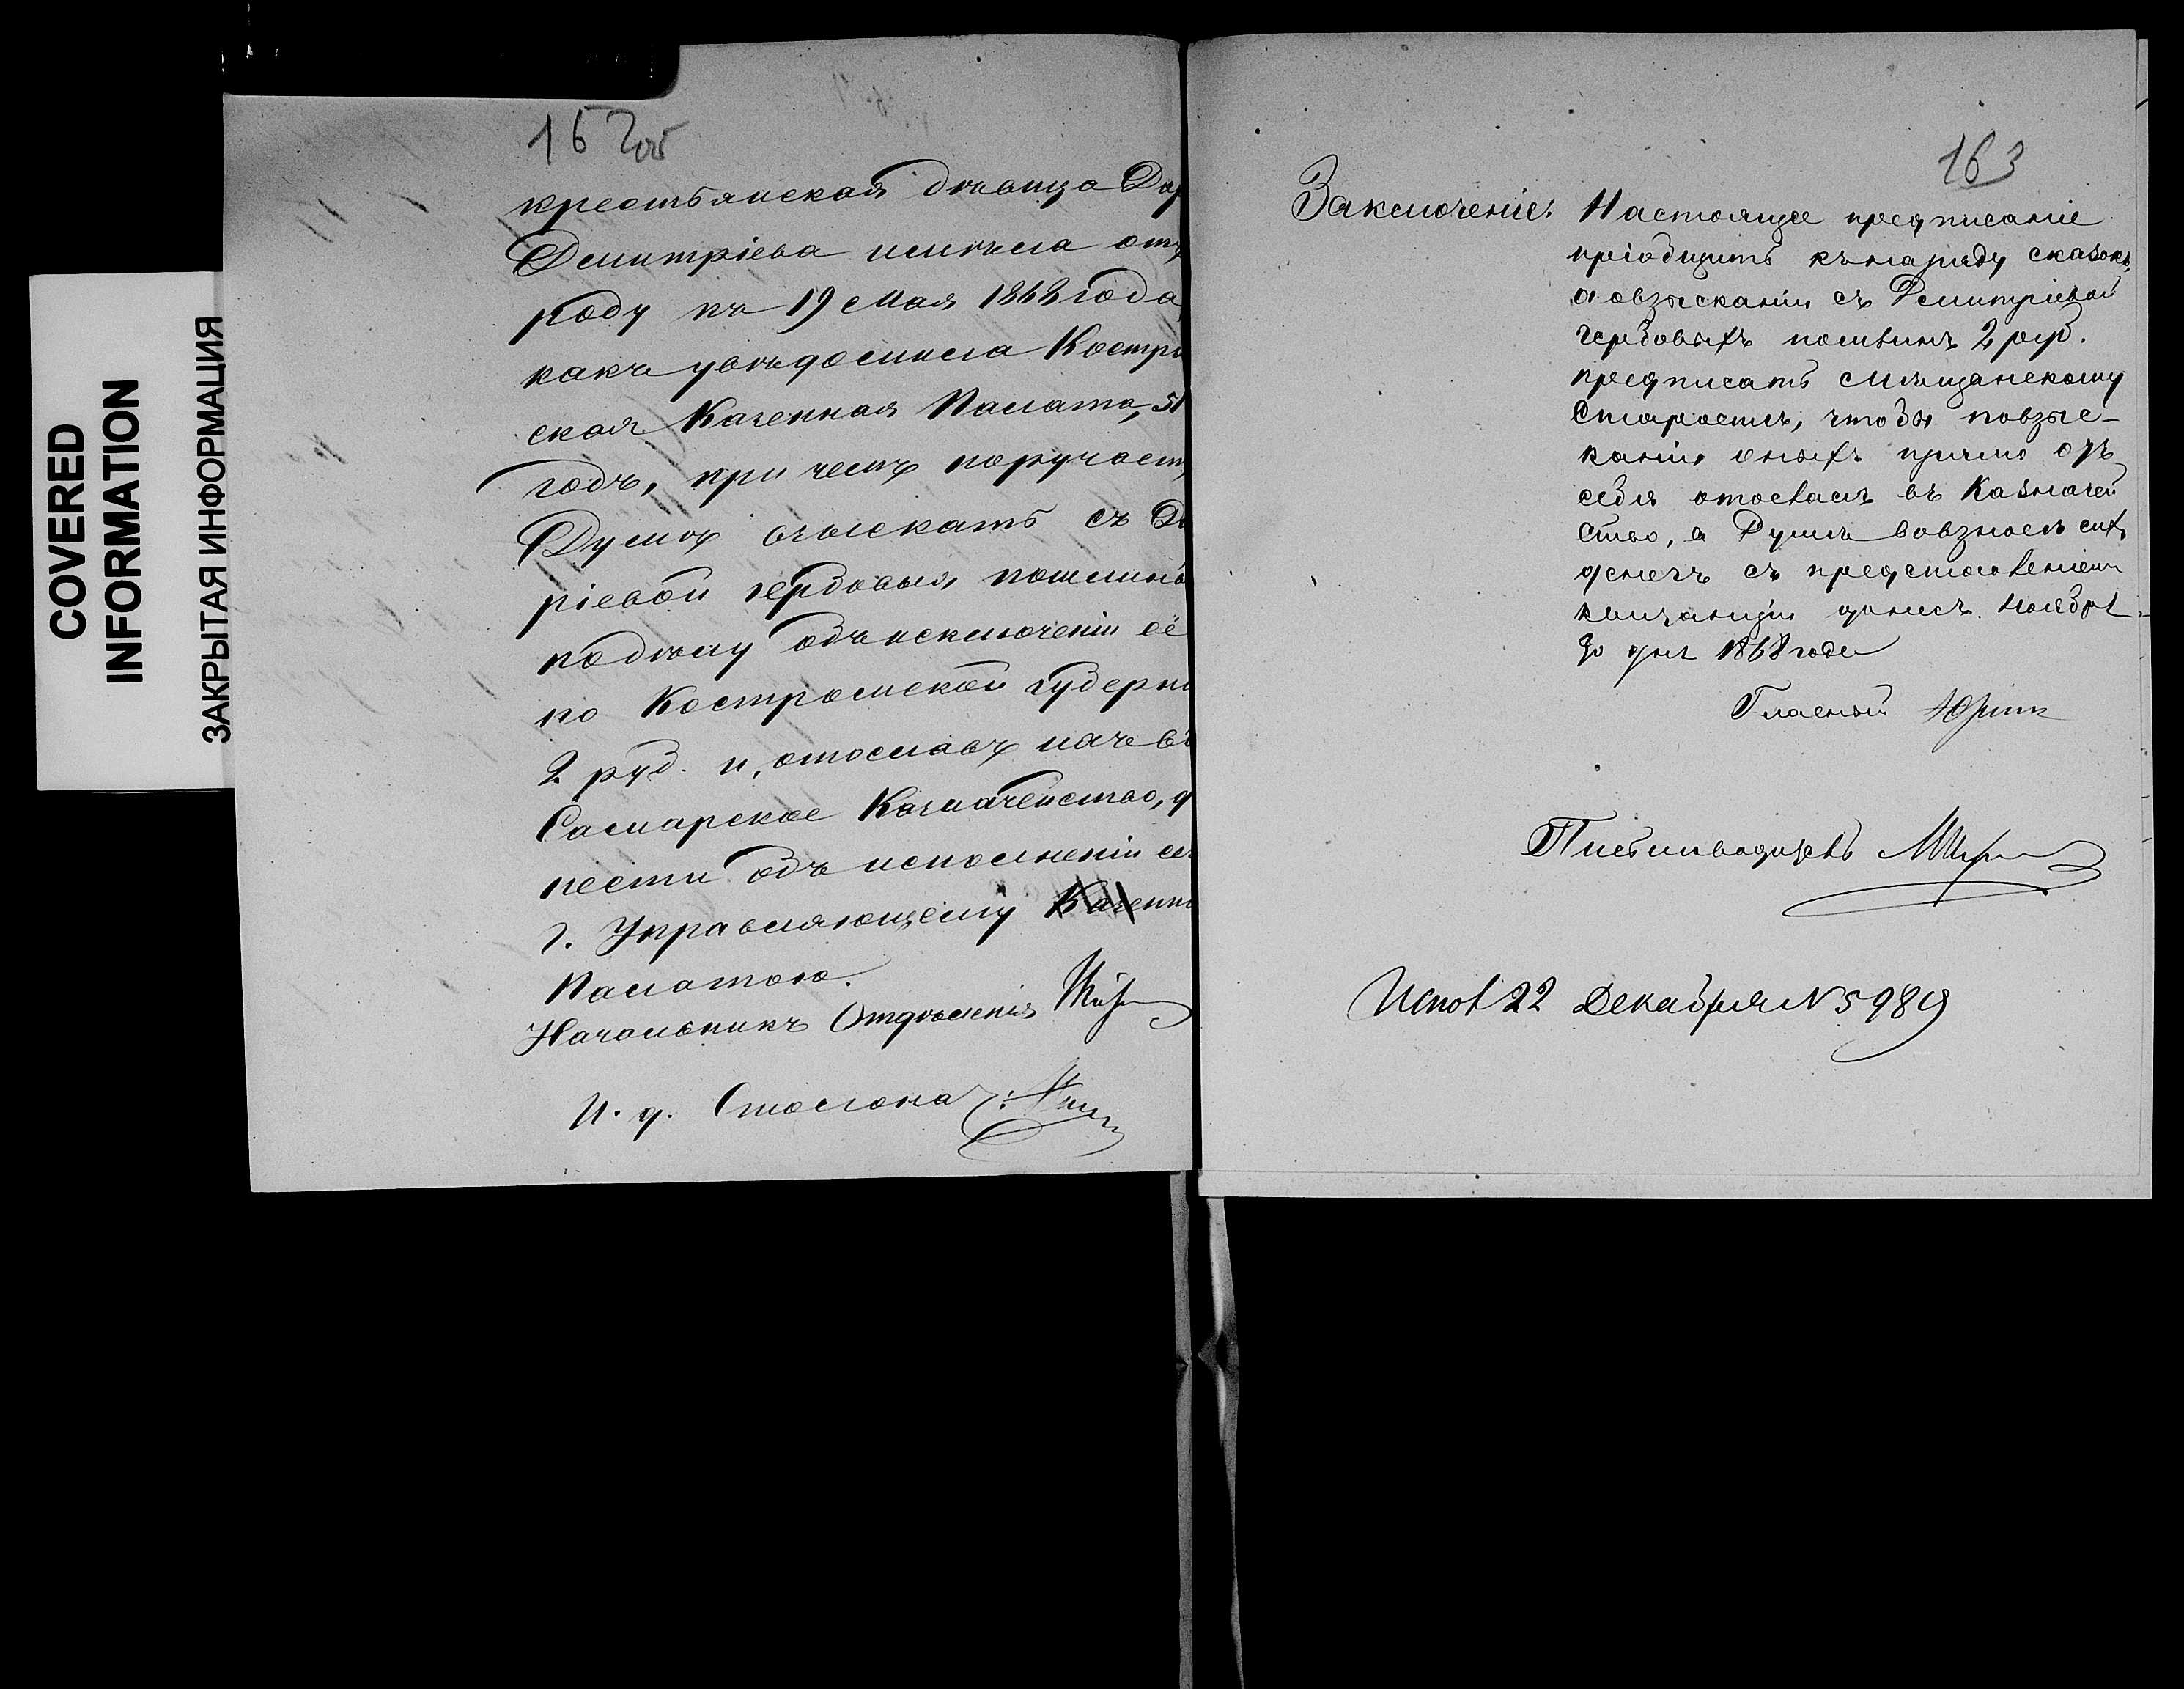 COVERED
INFORMATION
ЗАКРЫТАЯ ИНФОРМАЦИЯ
162 об
крестьянская дѣвица Дар
Дмитріева имѣла отъ
роду къ 19 Мая 1868 года,
какъ увѣдомила Костро
ская Казенная Палата, 51
годъ, при чемъ поручаетъ
Думѣ взыскать съ Дм
ріевой гербовыя пошлины
по дѣлу объ исключеніи её
по Костромской губерні
2 руб. и, отославъ ихъ въ
Самарское Казначейство, д
нести объ исполненіи се
г. Управляющему Казенн
Палатою.
Начальникъ Отдѣленія
И. д. Столонач.
163
Заключеніе. Настоящее предписаніе
пріобщить къ наряду сказокъ,
а о взысканіи съ Дмитріевой
гербовыхъ пошлинъ 2 руб.
предписать Мѣщанскому
Старостѣ, чтобы по взыс-
каніи оныхъ прямо отъ
себя отослалъ въ Казначей
ство, а Думѣ о взносѣ сихъ
денегъ съ представленіемъ
квитанціи донесъ. Ноября
30 дня 1868 года
Гласный
Письмоводитель
Испол 22 Декабря № 5989